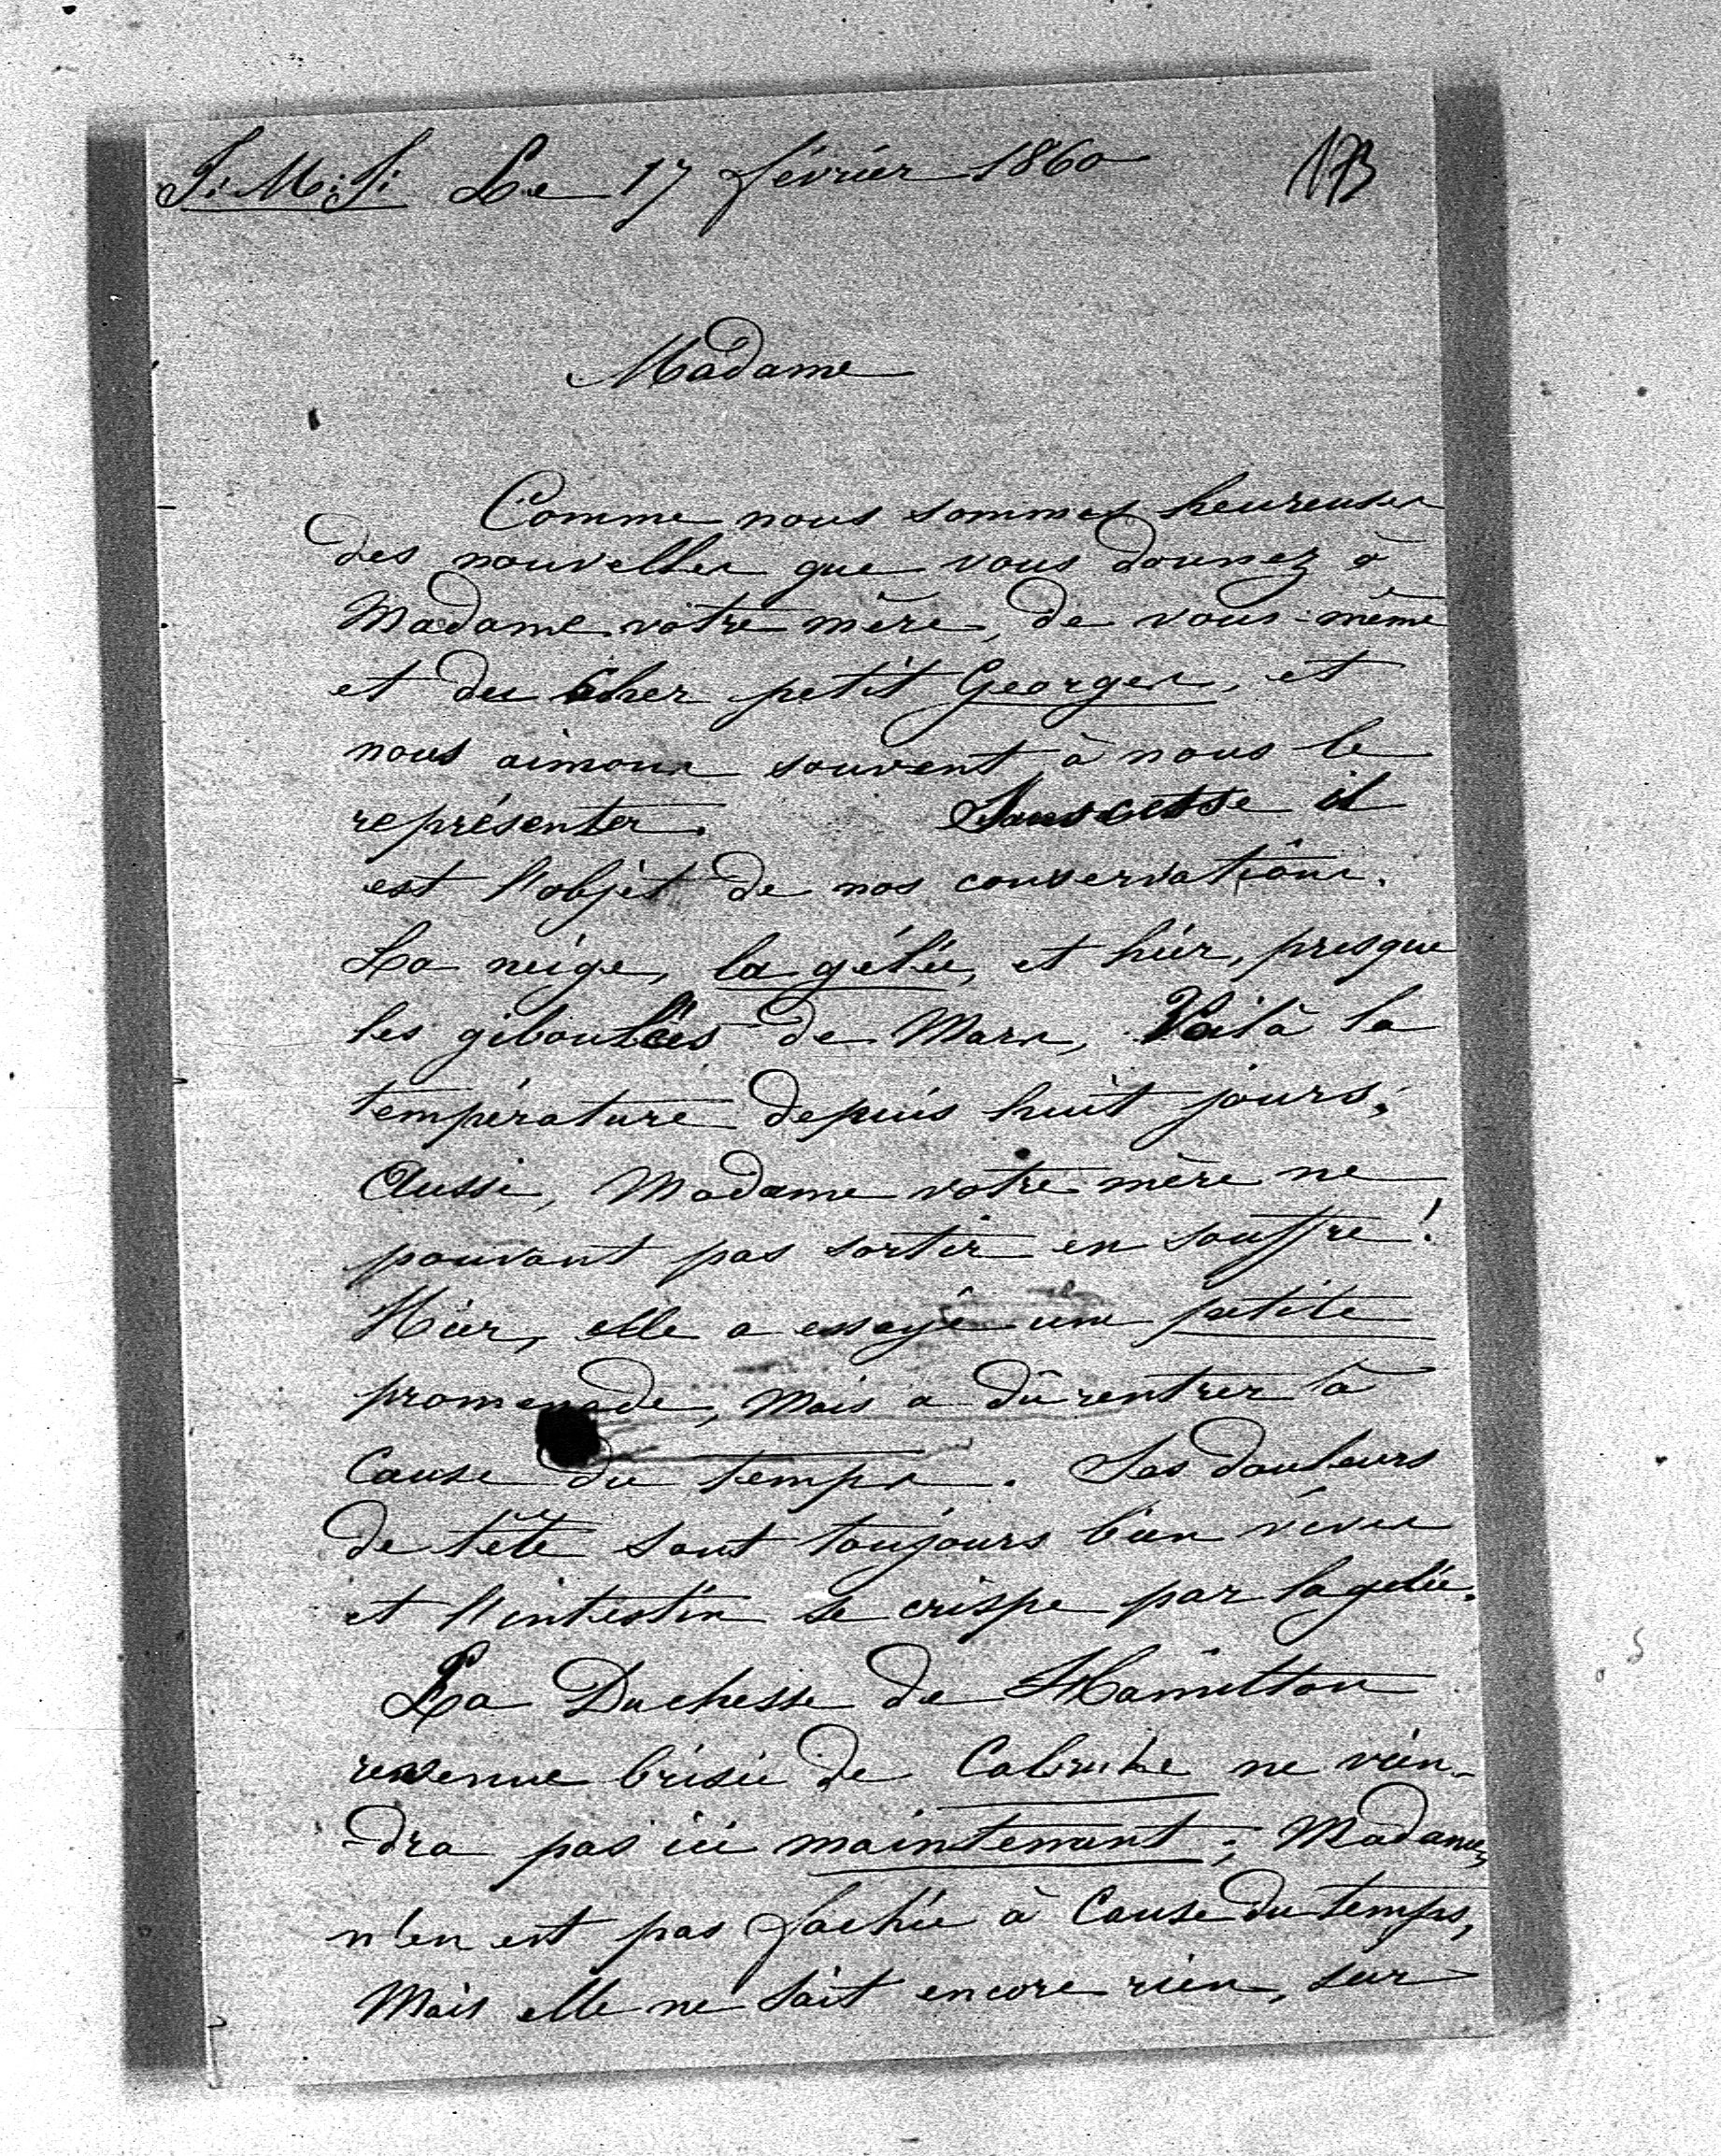 J. M. J. Le 17 février 1860 173
Madame
Comme nous sommes heureuses
des nouvelles que vous donnez à
Madame votre mère, de vous-même
et du cher petit Georges, et
nous aimons souvent à nous le
représenter. Sans cesse il
est l'objèt de nos conversations.
La neige, la gélée, et hièr, presque
les giboulées de Mars, Voilà la
température depuis huit jours;
Aussi, Madame votre mère ne
pouvant pas sortir en souffre!
Hier, elle a essayé une petite
promenade, mais a dû rentrer à
cause du temps. Ses douleurs
de tête sont toujours bien vives
et l'intestin se crispe par la gelée.
La Duchesse de Hamilton
revenue brisée de Calsruhe ne vien-
-dra pas ici maintenant; Madame,
n'en est pas fachée à Cause du temps,
Mais elle ne sait encore rien, sur